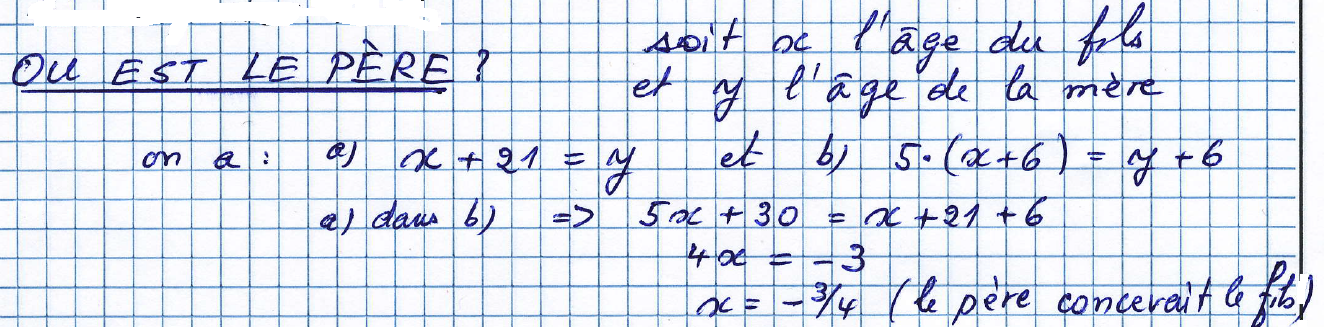 OU EST LE PÈRE ?
soit x l'âge du fils
et y l'âge de la mère
on a : a) x + 21 = y et b) 5·(x+6) = y + 6
a) dans b) => 5x + 30 = x + 21 + 6
4x = -3
x = -3/4 (le père concevait le fils)